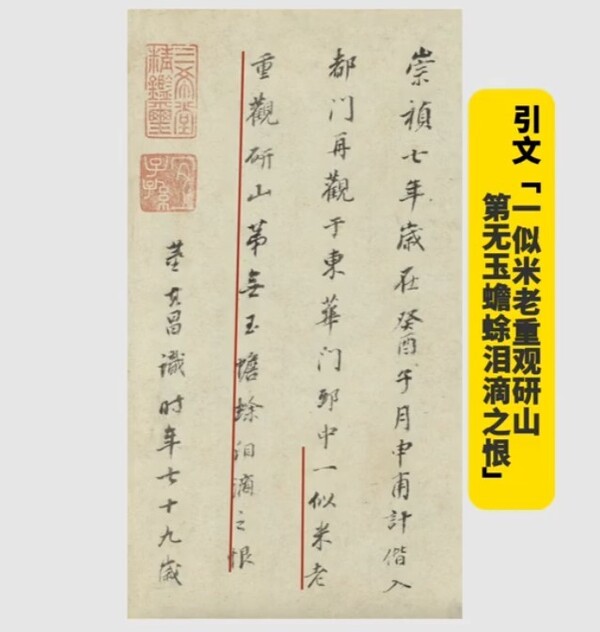 引文「一似米老重观研山
第无玉蟾蜍泪滴之恨」
崇禎七年歲在癸酉午月申甫計偕入
都门再觀于東華门邸中一似米老
重觀研山第無玉蟾蜍泪滴之恨
董其昌識时年七十九歲
三希堂精鑑璽
宜子孫